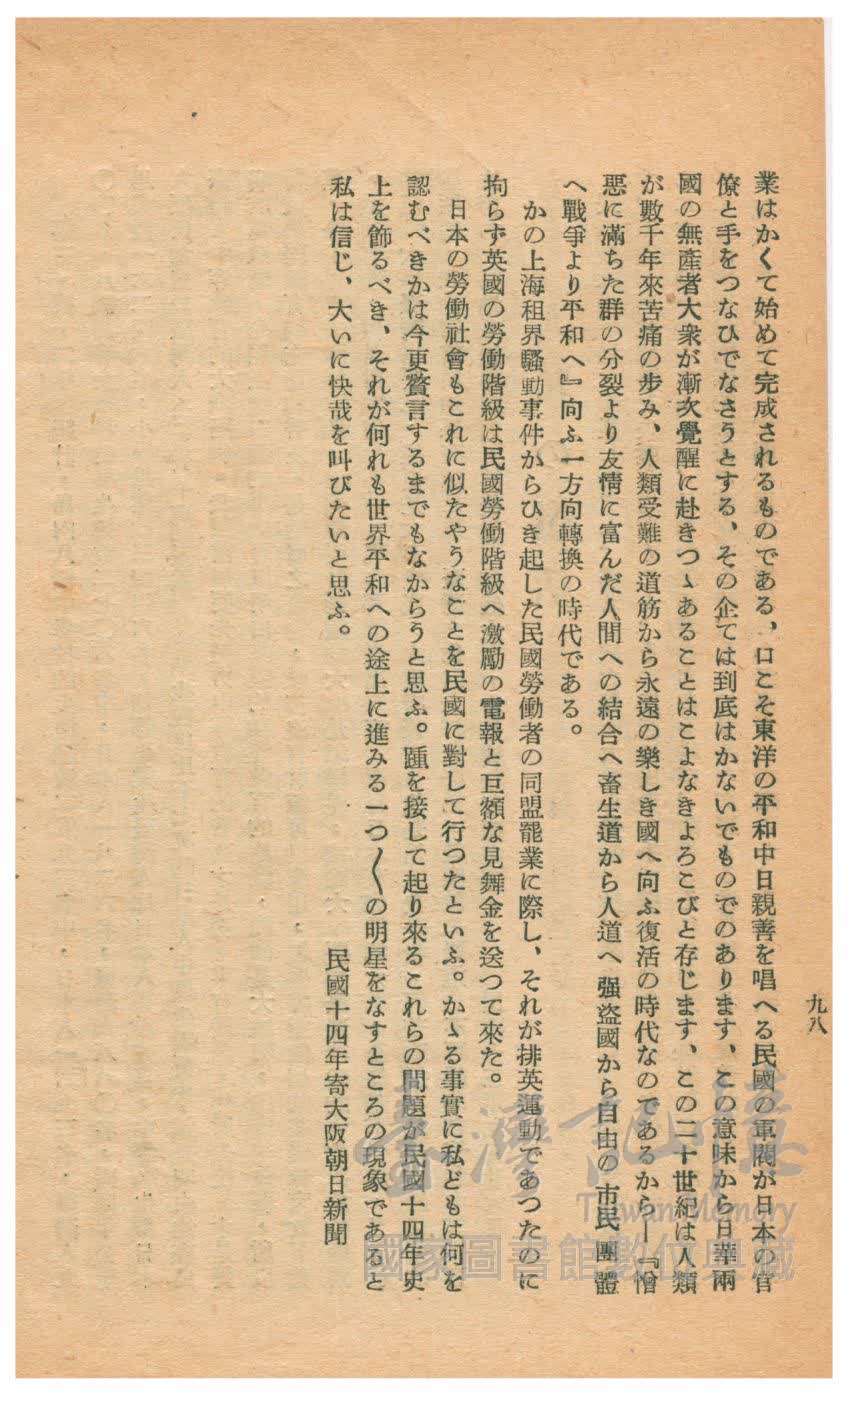 九八
業はかくて始めて完成されるものである、口こそ東洋の平和中日親善を唱へる民國の軍閥が日本の官
僚と手をつなひでなさうとする、その企ては到底はかないでものでのあります、この意味から日華兩
國の無產者大衆が漸次覺醒に赴きつゝあることはこよなきよろこびと存じます、この二十世紀は人類
が數千年來苦痛の步み、人類受難の道筋から永遠の樂しき國へ向ふ復活の時代なのであるから―『憎
惡に滿ちた群の分裂より友情に富んだ人間への結合へ畜生道から人道へ强盜國から自由の市民團體
へ戰爭より平和へ』向ふ一方向轉換の時代である。
かの上海租界騷動事件からひき起した民國勞働者の同盟罷業に際し、それが排英運動であつたのに
拘らず英國の勞働階級は民國勞働階級へ激勵の電報と巨額な見舞金を送つて來た。
日本の勞働社會もこれに似たやうなことを民國に對して行つたといふ。かゝる事實に私どもは何を
認むべきかは今更贅言するまでもなからうと思ふ。踵を接して起り來るこれらの問題が民國十四年史
上を飾るべき、それが何れも世界平和への途上に進みる一つ〱の明星をなすところの現象であると
私は信じ、大いに快哉を叫びたいと思ふ。
民國十四年寄大阪朝日新聞
臺灣記憶
Taiwan Memory
國家圖書館數位典藏